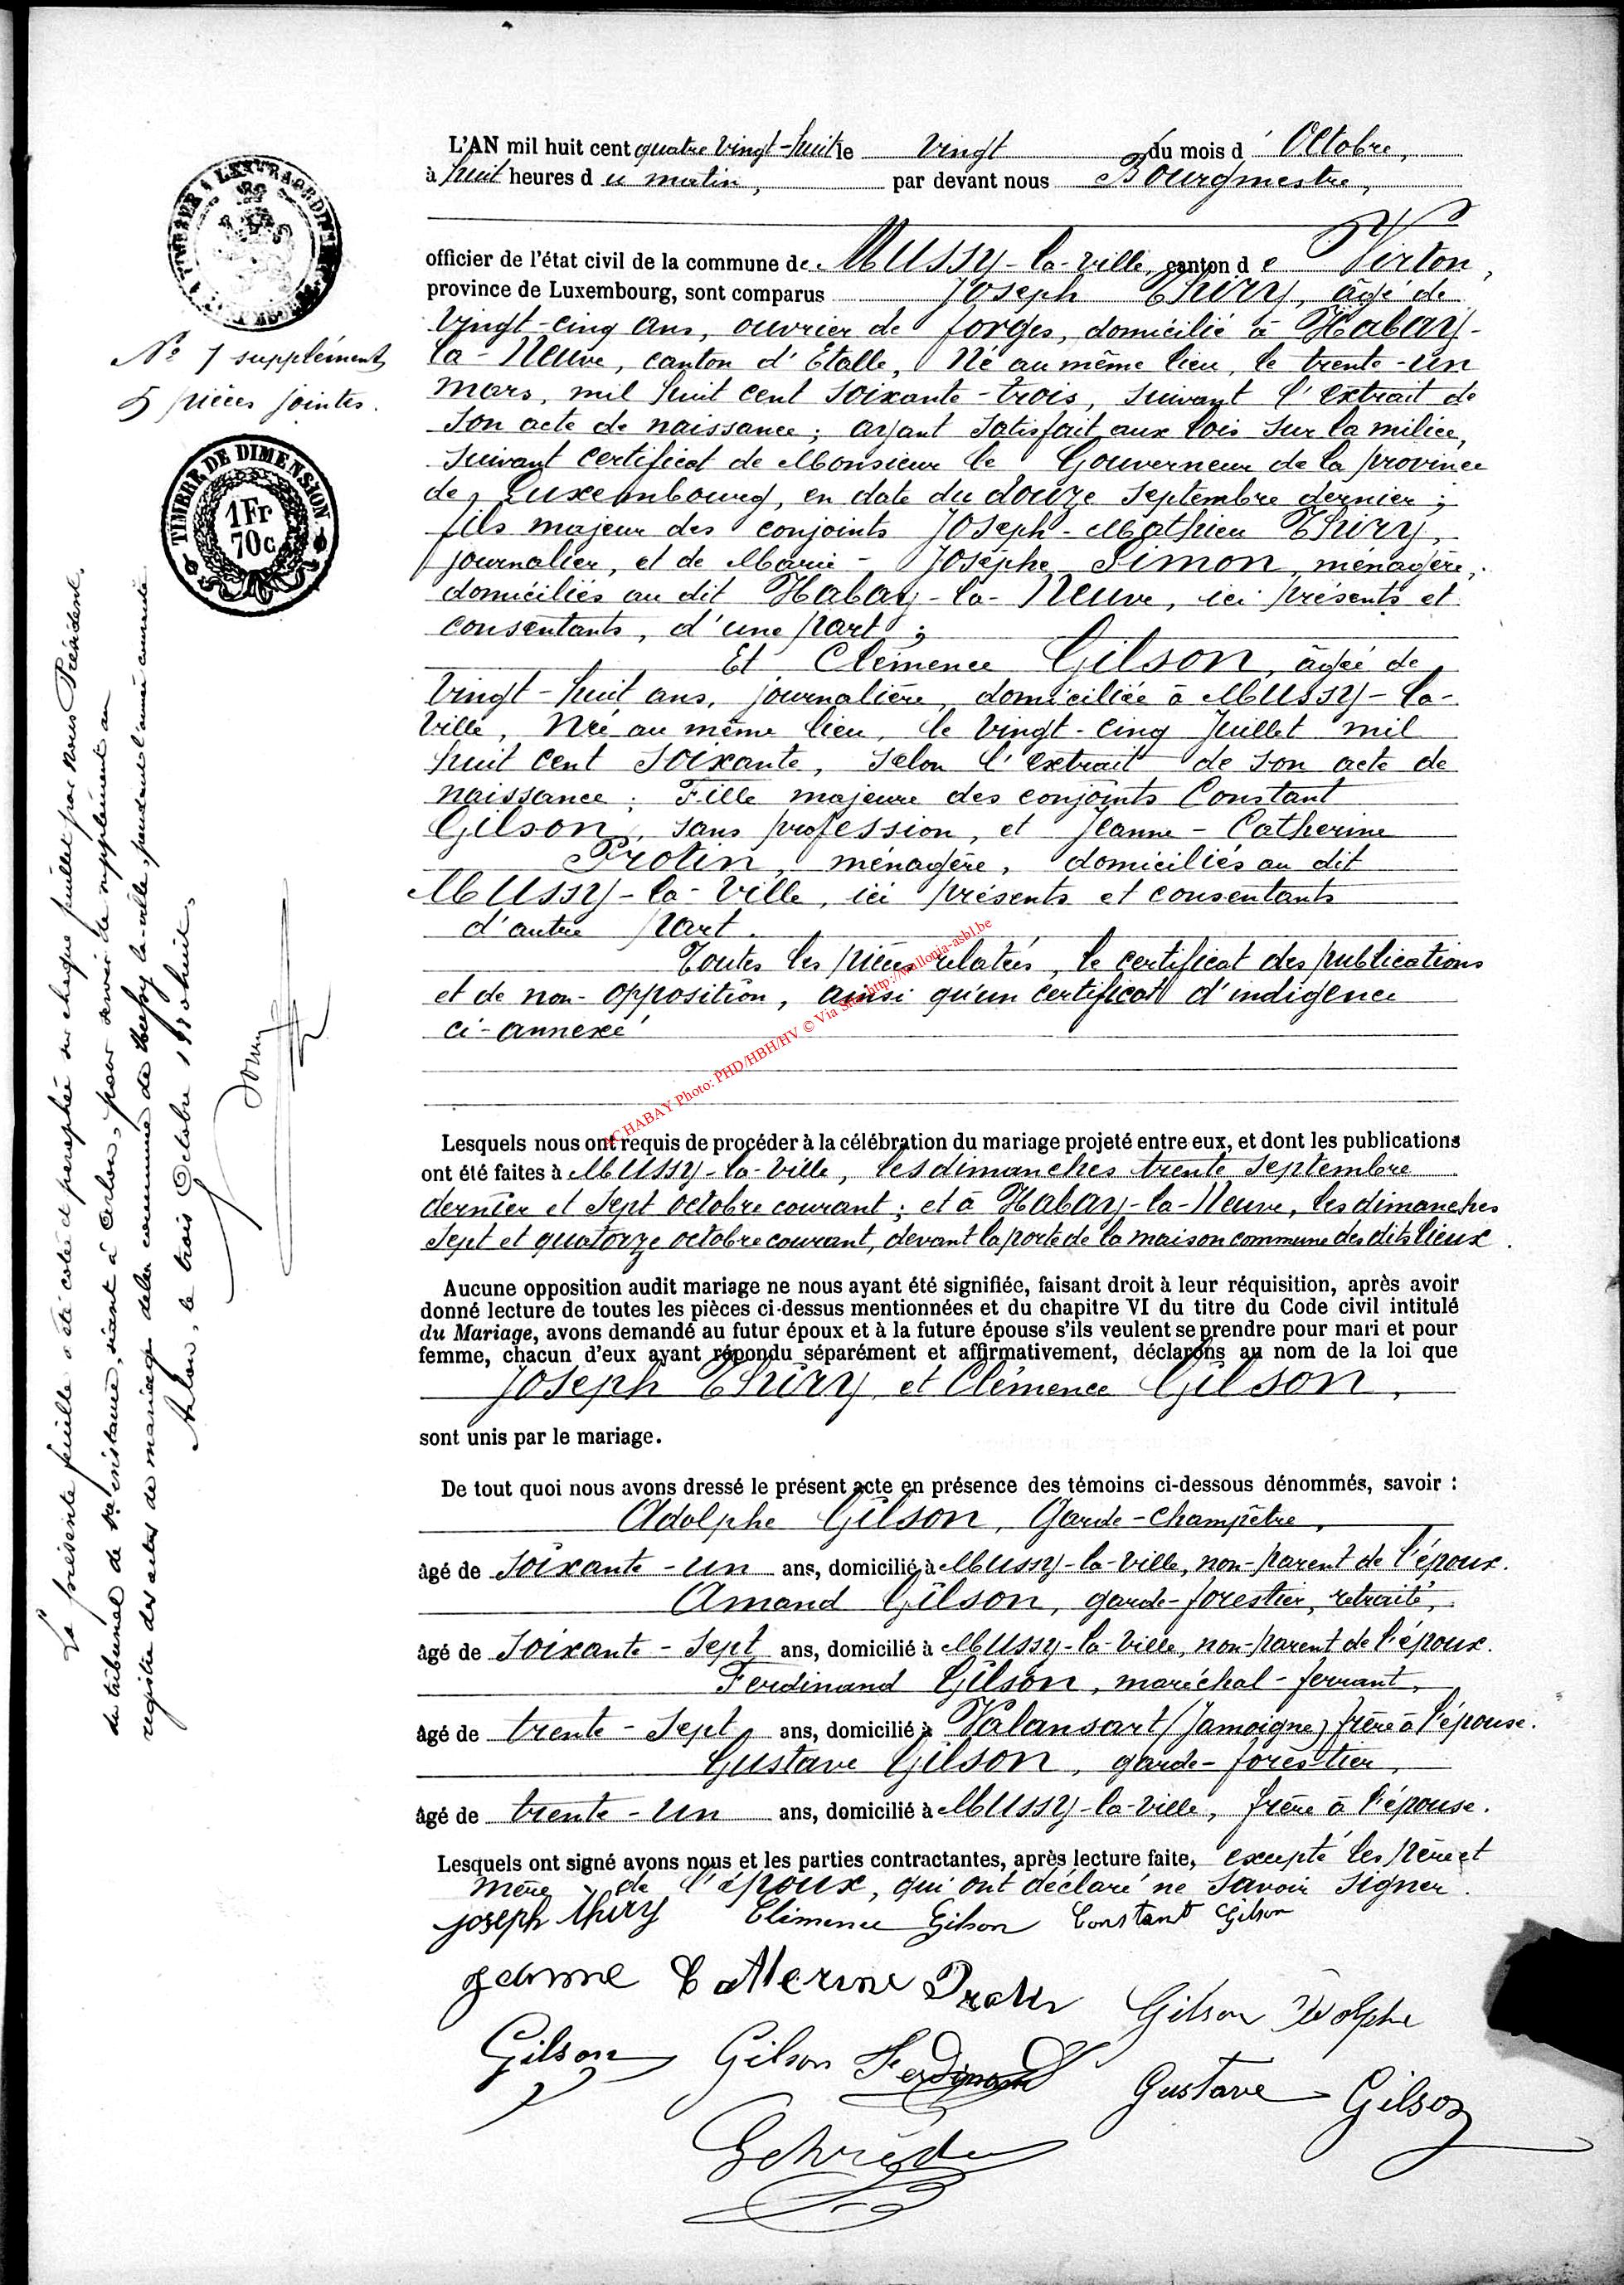 L'AN mil huit cent quatre vingt-huit le vingt du mois d' Octobre,
à huit heures du matin, par devant nous Bourgmestre,
officier de l'état civil de la commune de Mussy-la-ville, canton de Virton,
province de Luxembourg, sont comparus Joseph Thiry, âgé de
vingt-cinq ans, ouvrier de forges, domicilié à Habay-
la-Neuve, canton d'Etalle, Né au même lieu, le trente-un
mars, mil huit cent soixante-trois, suivant l'extrait de
son acte de naissance; ayant satisfait aux lois sur la milice,
suivant certificat de Monsieur le Gouverneur de la province
de Luxembourg, en date du douze septembre dernier;
fils majeur des conjoints Joseph-Mathieu Thiry,
journalier, et de Marie-Joséphe Simon, ménagère,
domiciliés au dit Habay-la-Neuve, ici présents et
consentants, d'une part;
Et Clémence Gilson, âgée de
vingt-huit ans, journalière, domiciliée à Mussy-la-
ville, Née au même lieu, le vingt-cinq Juillet mil
huit cent soixante, selon l'extrait de son acte de
naissance; Fille majeure des conjoints Constant
Gilson, sans profession, et Jeanne-Catherine
Protin, ménagère, domiciliés au dit
Mussy-la-ville, ici présents et consentants
d'autre part.
Toutes les pièces relatées, le certificat des publications
et de non-opposition, ainsi qu'un certificat d'indigence
ci-annexé
Lesquels nous ont requis de procéder à la célébration du mariage projeté entre eux, et dont les publications
ont été faites à Mussy-la-ville, les dimanches trente septembre
dernier et sept octobre courant; et à Habay-la-Neuve, les dimanches
sept et quatorze octobre courant, devant la porte de la maison commune des dits lieux.
Aucune opposition audit mariage ne nous ayant été signifiée, faisant droit à leur réquisition, après avoir
donné lecture de toutes les pièces ci-dessus mentionnées et du chapitre VI du titre du Code civil intitulé
du Mariage, avons demandé au futur époux et à la future épouse s'ils veulent se prendre pour mari et pour
femme, chacun d'eux ayant répondu séparément et affirmativement, déclarons au nom de la loi que
Joseph Thiry, et Clémence Gilson,
sont unis par le mariage.
De tout quoi nous avons dressé le présent acte en présence des témoins ci-dessous dénommés, savoir :
Adolphe Gilson, Garde-champêtre,
âgé de soixante-un ans, domicilié à Mussy-la-ville, non-parent de l'époux.
Amand Gilson, garde-forestier, retraité,
âgé de soixante-sept ans, domicilié à Mussy-la-ville, non-parent de l'époux.
Ferdinand Gilson, maréchal-ferrant,
âgé de trente-sept ans, domicilié à Valansart (Jamoigne) frère à l'épouse.
Gustave Gilson, garde-forestier,
âgé de trente-un ans, domicilié à Mussy-la-ville, frère à l'épouse.
Lesquels ont signé avons nous et les parties contractantes, après lecture faite, excepté les père et
mère de l'époux, qui ont déclaré ne savoir signer.
joseph thiry Clémence Gilson Constant Gilson
jeanne Catterine Protin Gilson Adolphe
Gilson Gilson Ferdinand Gustave Gilson
N° 7 supplément
5 pièces jointes.
TIMBRE DE DIMENSION
1Fr
70c
La présente feuille a été cotée et paraphée sur chaque feuillet par nous Président
du tribunal de 1re instance, séant à Arlon, pour servir de supplément au
registre des actes de mariages de la commune de Mussy la-ville, pendant l'année courante
Arlon, le trois Octobre 188 huit.
AC HABAY Photo: PHD/HBH/HV © Via Site http://wallonia-asbl.be